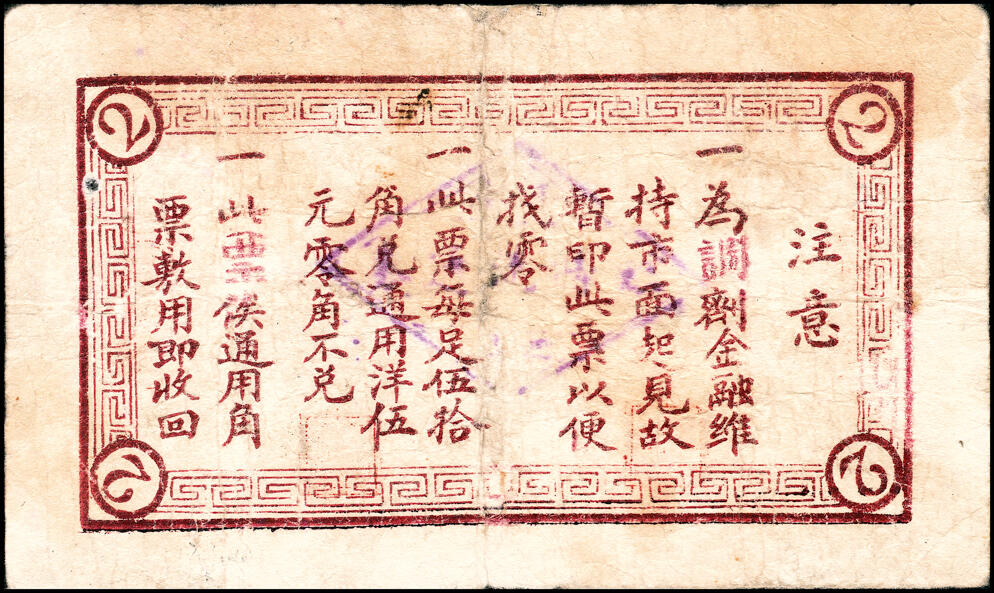 注意
一 為調劑金融維
持市面起見故
暫印此票以便
找零
一 此票每足伍拾
角兑通用洋伍
元零角不兑
一 此票俟通用角
票敷用即收回
2
2
2
2